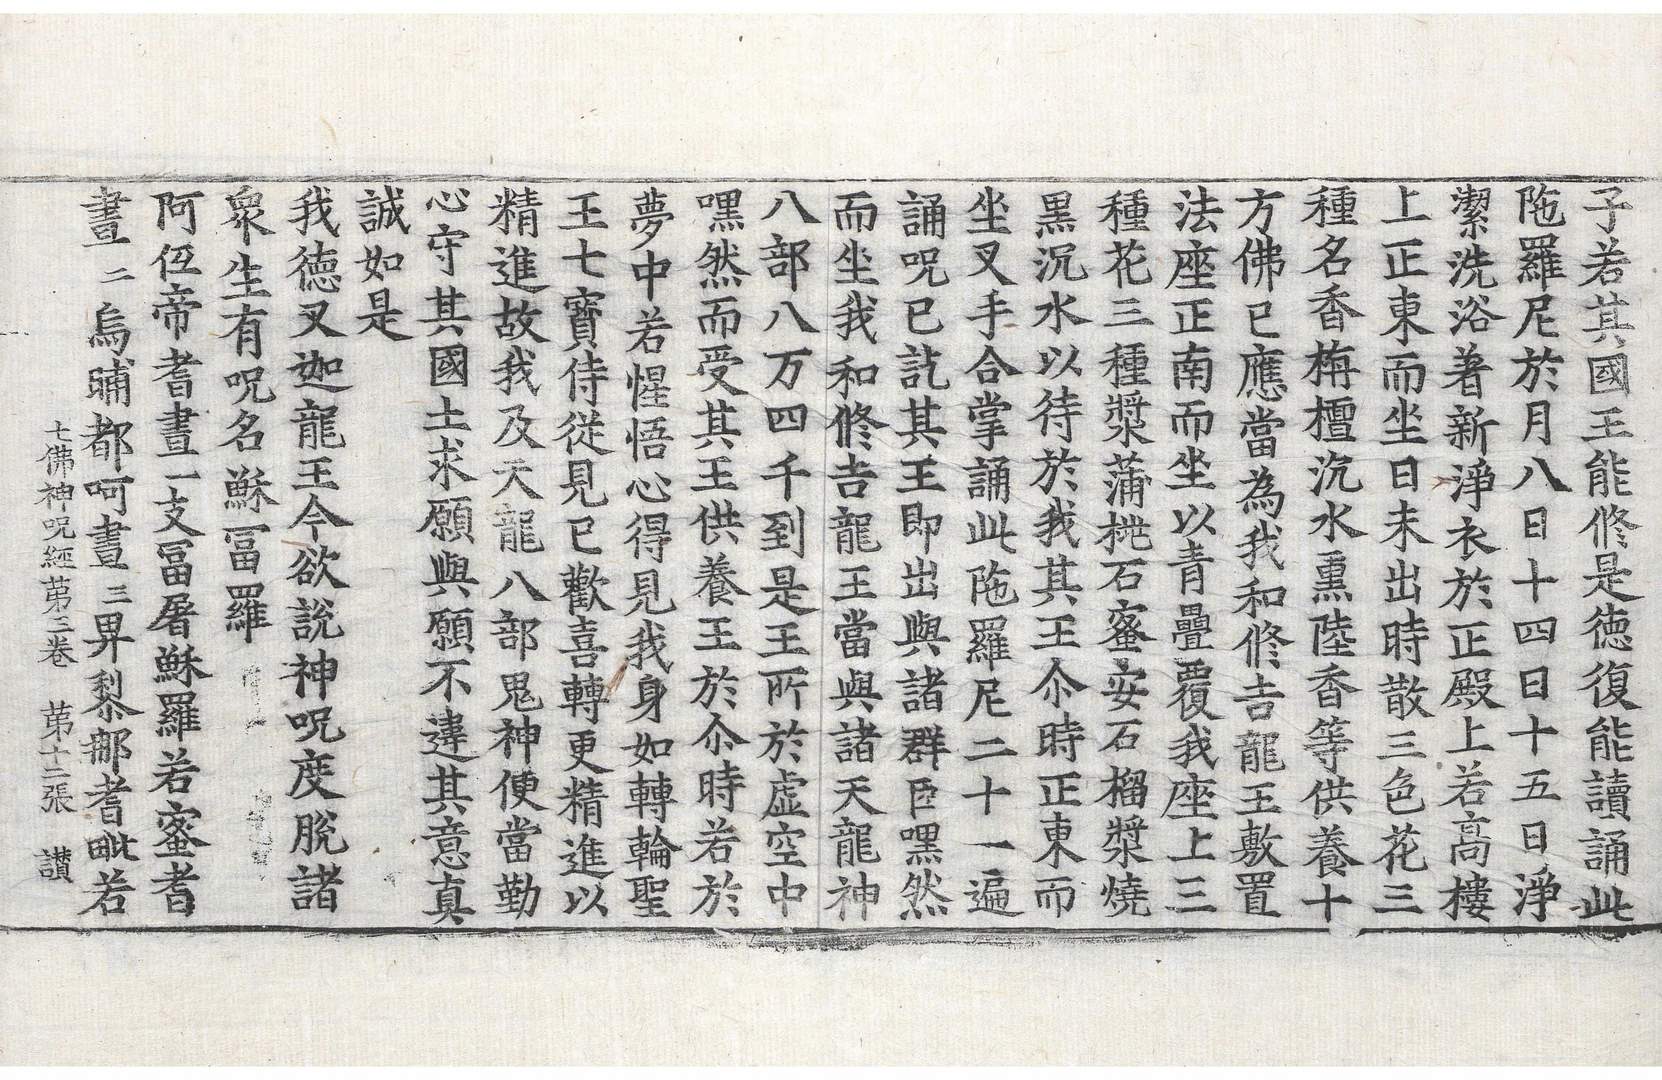 子若其國王能修是德復能讀誦此
陁羅尼於月八日十四日十五日淨
潔洗浴著新淨衣於正殿上若高樓
上正東而坐日未出時散三色花三
種名香栴檀沉水熏陸香等供養十
方佛已應當為我和修吉龍王敷置
法座正南而坐以青疊覆我座上三
種花三種漿蒲桃石蜜安石榴漿燒
黑沉水以待於我其王尒時正東而
坐叉手合掌誦此陁羅尼二十一遍
誦呪已訖其王即出與諸群臣嘿然
而坐我和修吉龍王當與諸天龍神
八部八万四千到是王所於虛空中
嘿然而受其王供養王於尒時若於
夢中若惺悟心得見我身如轉輪聖
王七寶侍從見已歡喜轉更精進以
精進故我及天龍八部鬼神便當勤
心守其國土求願與願不違其意真
誠如是
我德叉迦龍王今欲說神呪度脫諸
衆生有呪名穌冨羅
阿伍帝耆晝一支冨屠穌羅若蜜耆
晝二烏晡都呵晝三畀黎鄁耆毗若
七佛神呪經苐三卷 苐十二張 讃